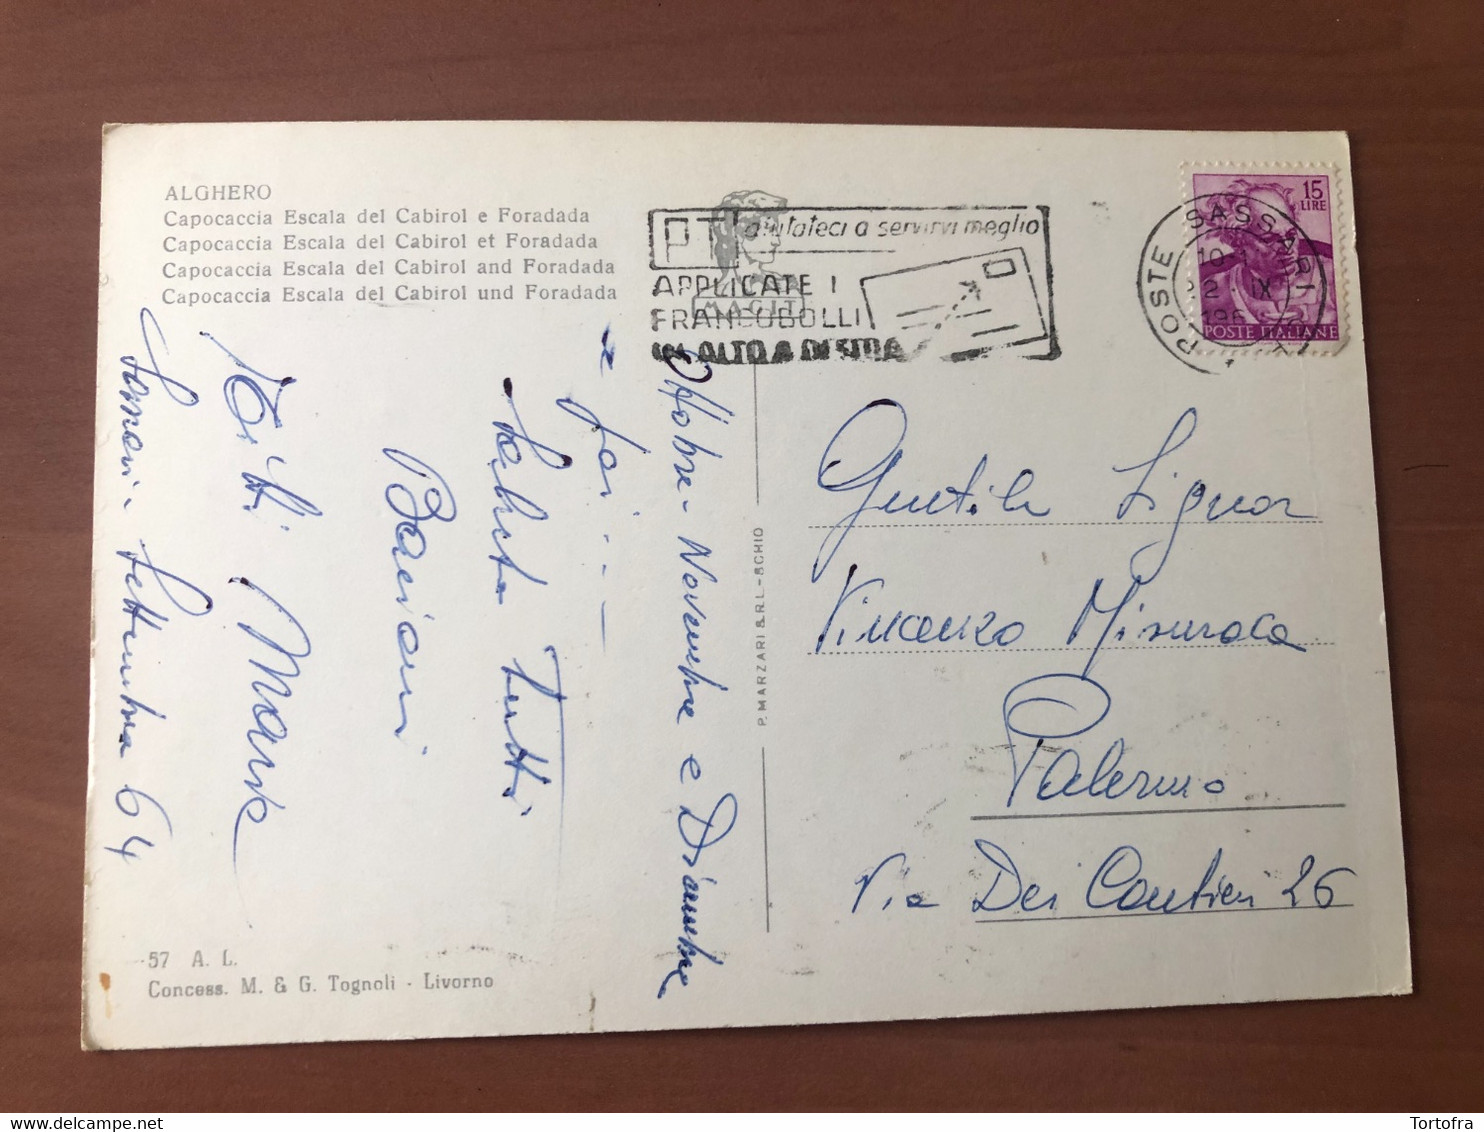 ALGHERO
Capocaccia Escala del Cabirol e Foradada
Capocaccia Escala del Cabirol et Foradada
Capocaccia Escala del Cabirol and Foradada
Capocaccia Escala del Cabirol und Foradada
PT aiutateci a servirvi meglio
APPLICATE I
FRANCOBOLLI
IN ALTO A DESTRA
MAGIT
POSTE SASSARI
IX
15
LIRE
POSTE ITALIANE
Settembre 64
Ottobre - Novembre e Dicembre
e poi - - -
Saluta Tutti
Bacioni
Gentile Signor
Vincenzo Misuraca
Palermo
Via Dei Cantieri 26
P. MARZARI S.R.L. - SCHIO
57 A. L.
Concess. M. & G. Tognoli - Livorno
Tortofra